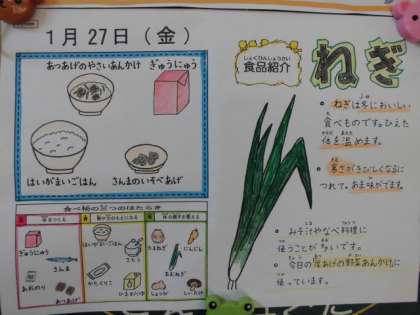 1月27日(金)
あつあげのやさいあんかけ
ぎゅうにゅう
はいがまいごはん
さんまのいそべあげ
食べ物の三つのはたらき
ぎゅうにゅう
さんま
あおのり
あつあげ
はいがまいごはん
かたくりこ
さとう
たまねぎ
にんじん
しょうが
しいたけ
しょくひんしょうかい
食品紹介
ねぎ
・ねぎは冬においしい
食べものです。ひえた
体を温めます。
・寒さがきびしくなるに
つれて、あま味がでます。
・みそ汁やなべ料理に
使うことが多いです。
・今日の「厚あげの野菜あんかけ」に
使っています。